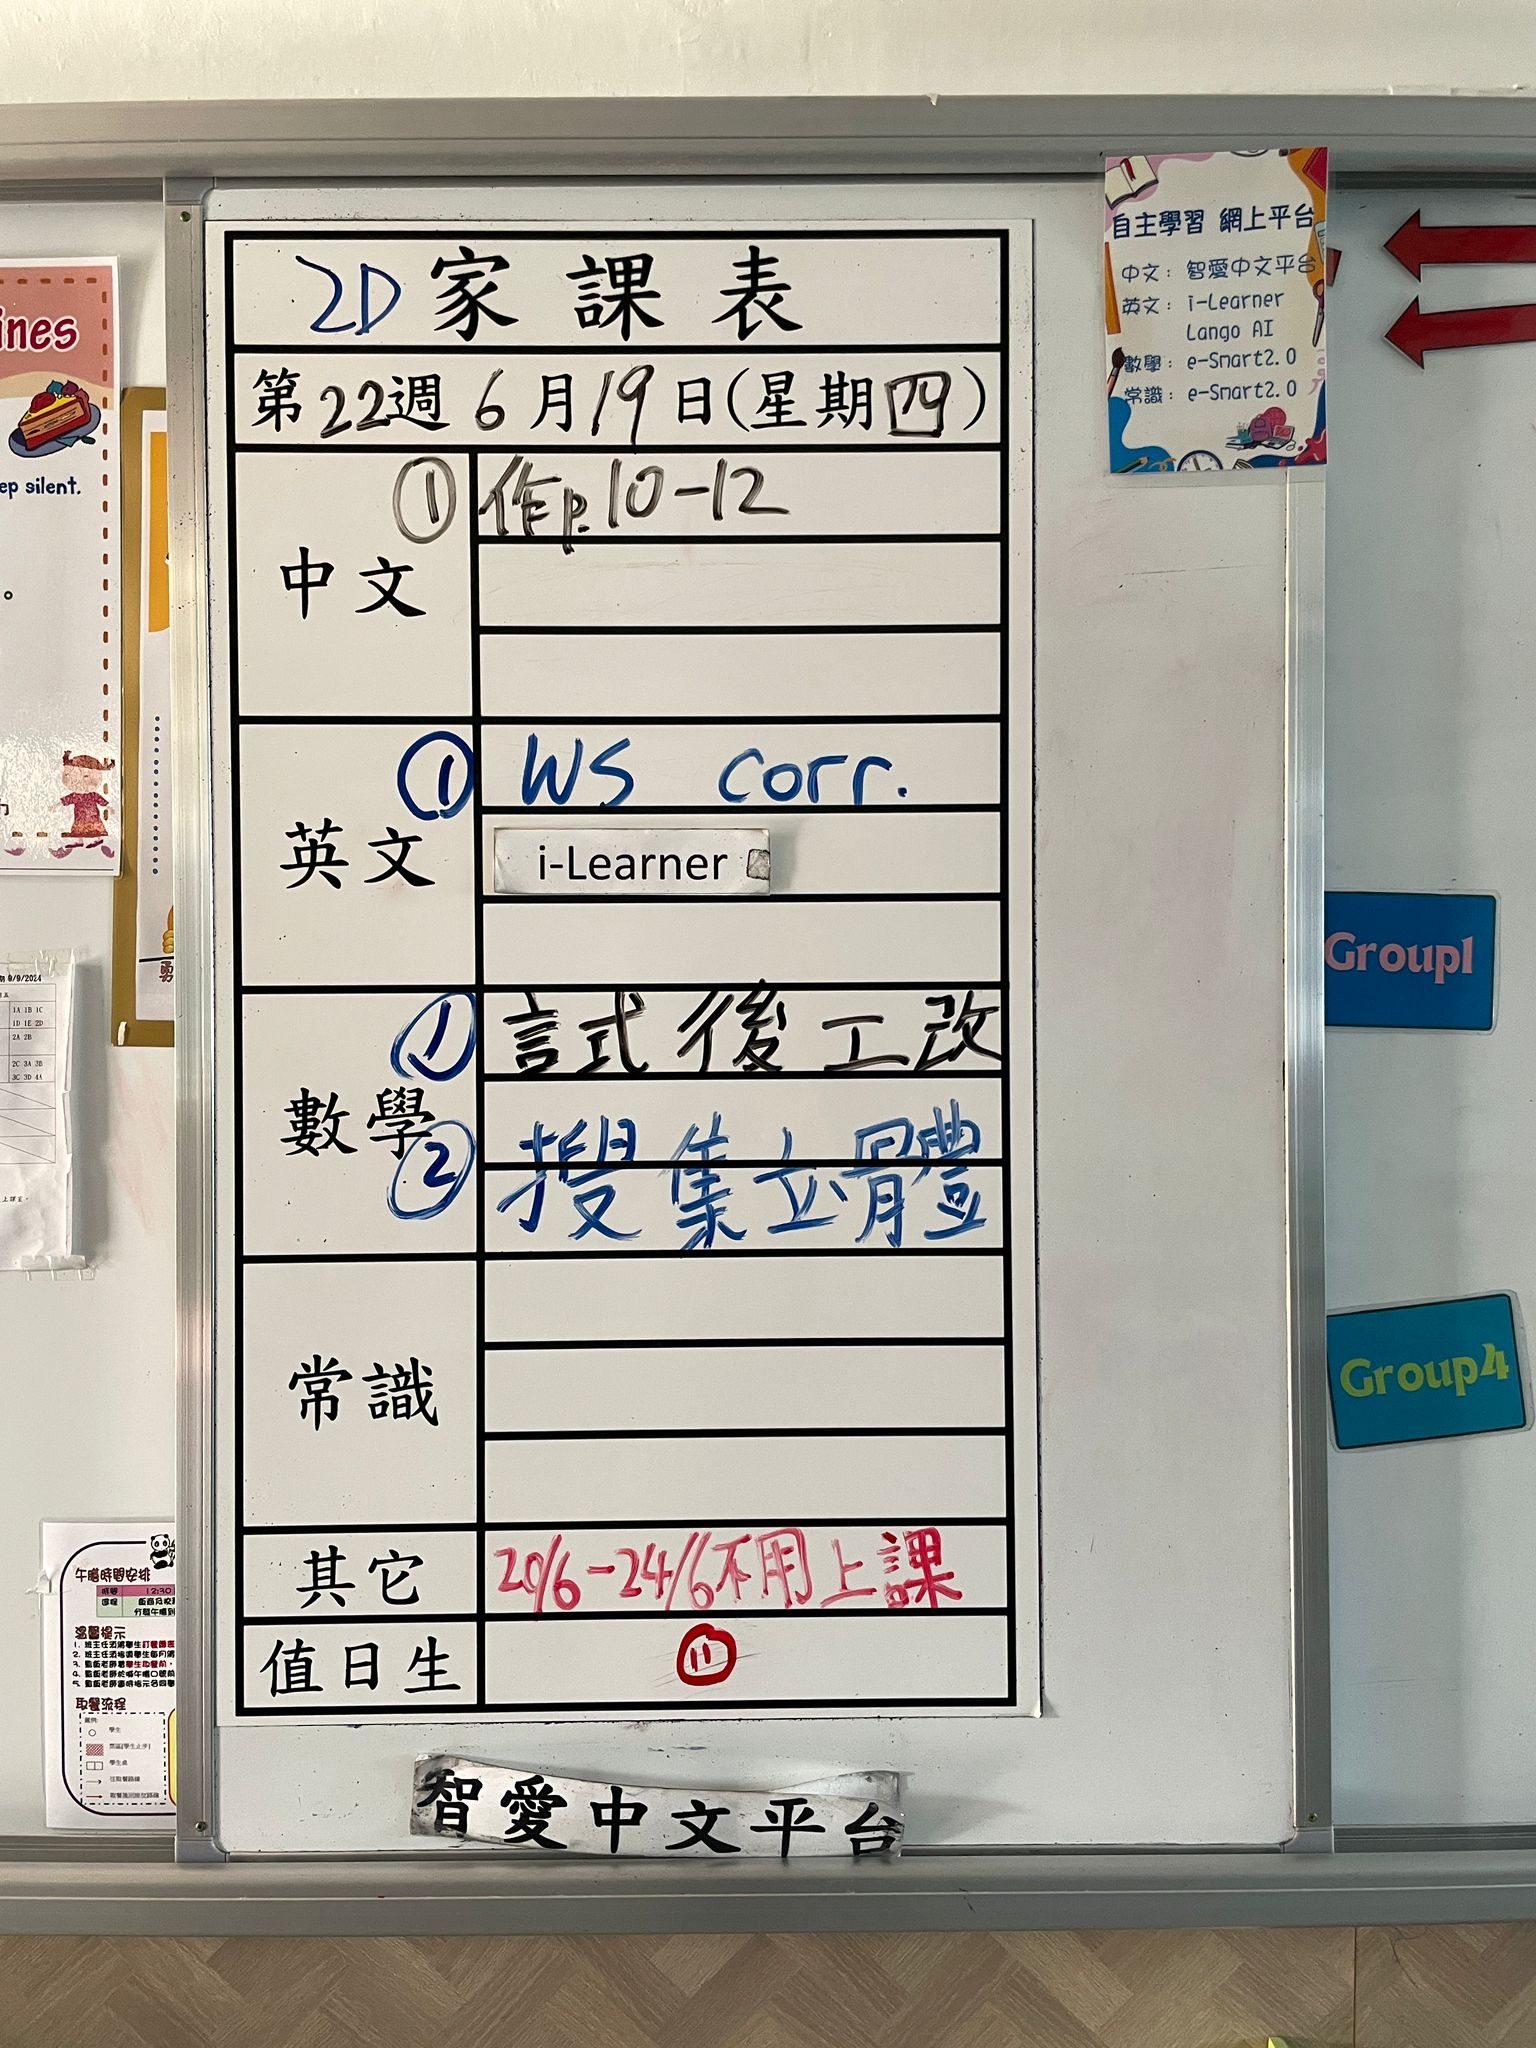 2D 家課表
第22週 6月19日(星期四)
中文
① 作p.10-12
英文
① WS corr.
i-Learner
數學
① 試後工改
② 搜集立體
常識
其它
20/6-24/6不用上課
值日生
⑪
智愛中文平台
自主學習 網上平台
中文: 智愛中文平台
英文: i-Learner
Lango AI
數學: e-Smart2.0
常識: e-Smart2.0
Group1
Group4
ines
ep silent.
9/9/2024
1A 1B 1C
1D 1E 2D
2A 2B
2C 3A 3B
3C 3D 4A
午膳時間安排
12:30
溫馨提示
取餐流程
學生